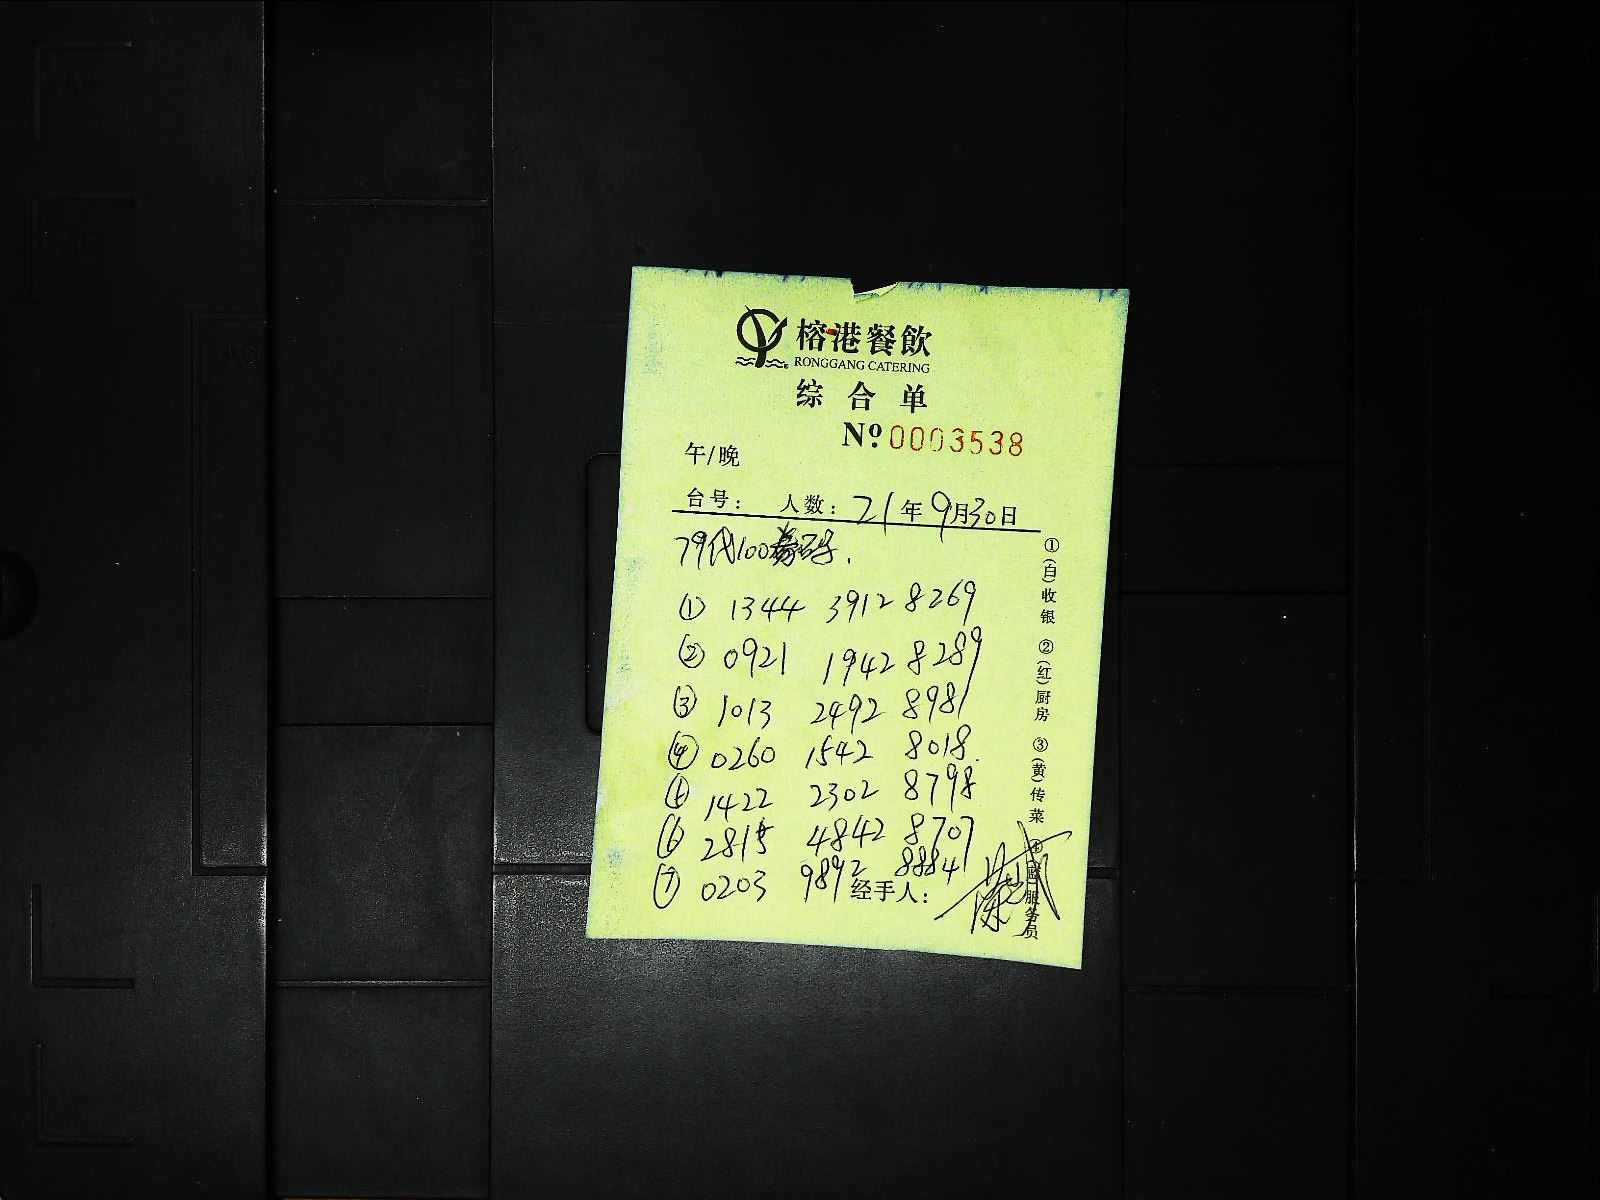 榕港餐飲
RONGGANG CATERING
综合单
№0003538
午/晚
台号: 人数: 21年9月30日
79代100券码.
① 1344 3912 8269
② 0921 1942 8289
③ 1013 2492 8981
④ 0260 1542 8018.
⑤ 1422 2302 8798
⑥ 2815 4842 8707
⑦ 0203 9892 8884
经手人:
①(白)收银 ②(红)厨房 ③(黄)传菜 ④(蓝)服务员
A4
A5